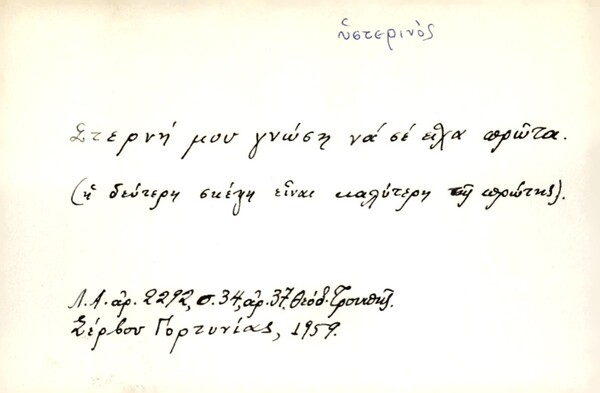 ὑστερινὸς
Στερνή μου γνώση νά σέ εἶχα πρῶτα.
(ἡ δεύτερη σκέψη εἶναι καλύτερη τῆς πρώτης).
Λ.Α. ἀρ. 2292, σ. 34, ἀρ. 37. Θεόδ. Τρουπῆς.
Σέρβου Γορτυνίας, 1959.